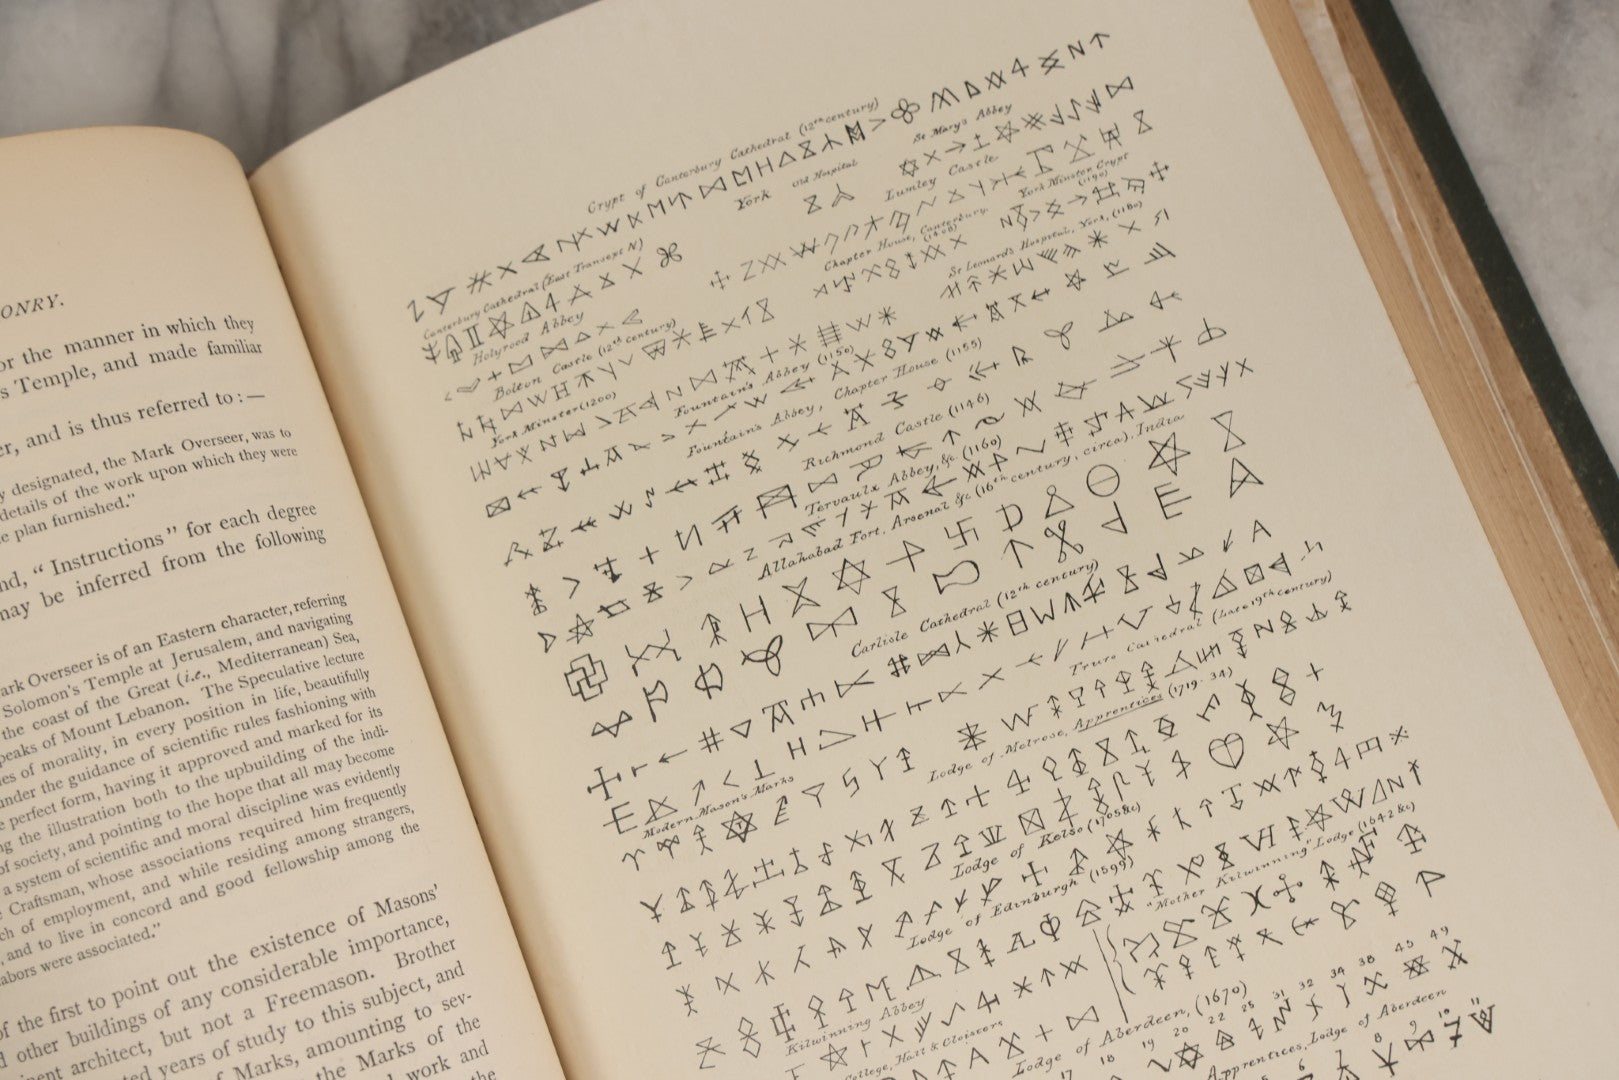 ONRY.
or the manner in which they
's Temple, and made familiar
er, and is thus referred to:—
y designated, the Mark Overseer, was to
details of the work upon which they were
e plan furnished."
nd, "Instructions" for each degree
may be inferred from the following
ark Overseer is of an Eastern character, referring
Solomon's Temple at Jerusalem, and navigating
the coast of the Great (i.e., Mediterranean) Sea,
peaks of Mount Lebanon. The Speculative lecture
les of morality, in every position in life, beautifully
under the guidance of scientific rules fashioning with
perfect form, having it approved and marked for its
g the illustration both to the upbuilding of the indi-
of society, and pointing to the hope that all may become
a system of scientific and moral discipline was evidently
Craftsman, whose associations required him frequently
ch of employment, and while residing among strangers,
and to live in concord and good fellowship among the
labors were associated."
of the first to point out the existence of Masons'
d other buildings of any considerable importance,
nent architect, but not a Freemason. Brother
ted years of study to this subject, and
of Marks, amounting to sev-
the Marks of the
work and
the
Crypt of Canterbury Cathedral (12th century)
York
Old Hospital
St Mary's Abbey
Lumley Castle
Canterbury Cathedral (East Transept N)
Chapter House, Canterbury.
(1408)
York Minster Crypt
(1190)
Holyrood Abbey
St Leonard's Hospital, York, (1180)
Bolton Castle (12th century)
York Minster (1200)
Fountain's Abbey (1150)
Fountain's Abbey, Chapter House (1155)
Richmond Castle (1146)
Tervaulx Abbey, &c. (1160)
Allahabad Fort, Arsenal &c (16th century, circa), India
Carlisle Cathedral (12th century)
Truro Cathedral (Late 19th century)
Modern Mason's Marks
Lodge of Melrose, Apprentices (1719-34)
Lodge of Kelso (1705 &c)
Lodge of Edinburgh (1599)
"Mother Kilwinning" Lodge (1642 &c)
Kilwinning Abbey
College, Hall & Cloisters
Lodge of Aberdeen, (1670)
17 18 19 20 22 25 31 32 34 38 45 49
Apprentices, Lodge of Aberdeen
5 6 7 8 9 10 11